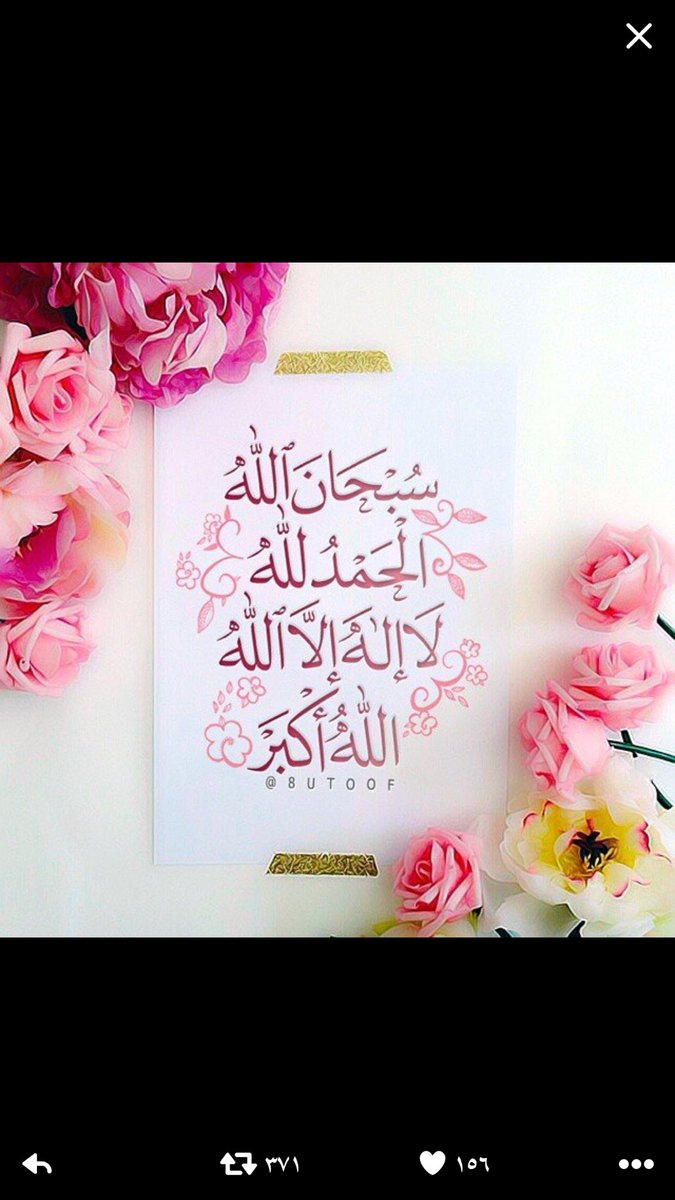 سُبْحَانَ ٱللّٰهُ
الْحَمْدُ للّٰهُ
لَا إِلٰهَ إِلَّا ٱللّٰهُ
اللّٰهُ أَكْبَرْ
@8UTOOF
٣٧١
١٥٦